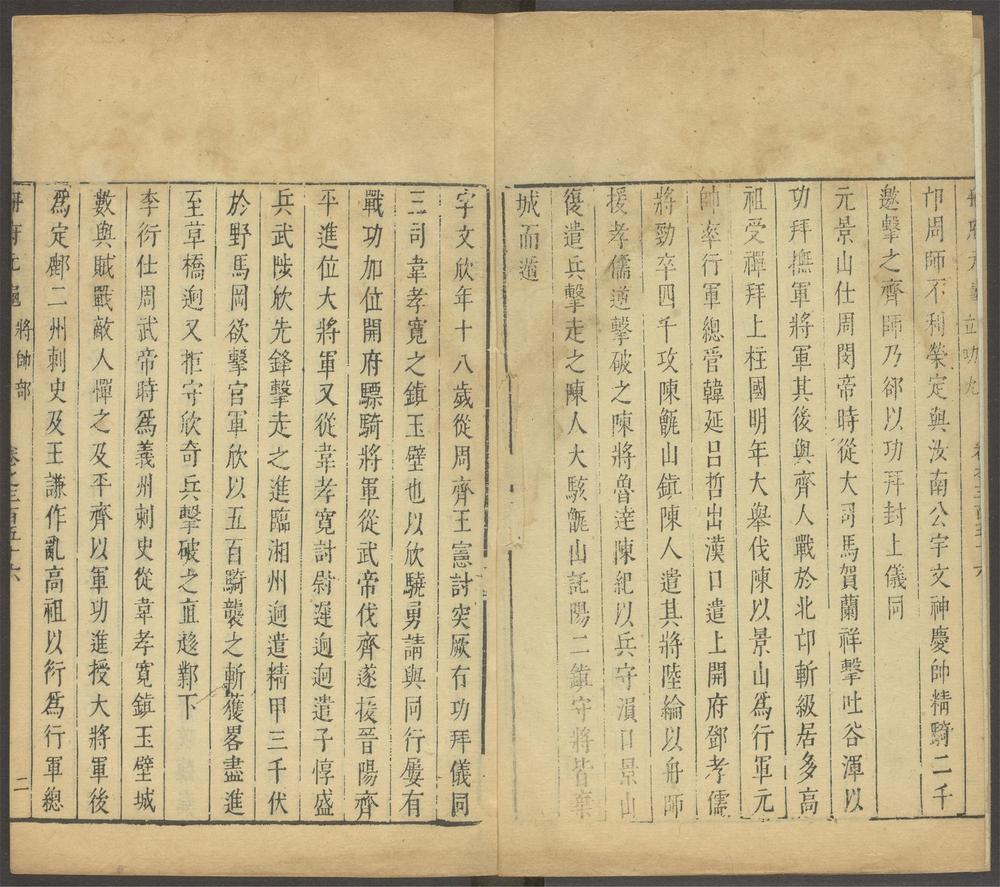 冊府元龜立功九 卷之三百五十六
邙周師不利榮定與汝南公宇文神慶帥精騎二千
邀擊之齊師乃郤以功拜封上儀同
元景山仕周閔帝時從大司馬賀蘭祥擊吐谷渾以
功拜撫軍將軍其後與齊人戰於北邙斬級居多高
祖受禪拜上柱國明年大舉伐陳以景山爲行軍元
帥率行軍總管韓延呂哲出漢口遣上開府鄧孝儒
將勁卒四千攻陳甑山鎮陳人遣其將陸綸以舟師
援孝儒逆擊破之陳將魯達陳紀以兵守溳口景山
復遣兵擊走之陳人大駭甑山託陽二鎮守將皆棄
城而遁
宇文欣年十八歲從周齊王憲討突厥有功拜儀同
三司韋孝寬之鎮玉壁也以欣驍勇請與同行屢有
戰功加位開府驃騎將軍從武帝伐齊遂援晉陽齊
平進位大將軍又從韋孝寬討尉遲迥迥遣子惇盛
兵武陟欣先鋒擊走之進臨湘州迥遣精甲三千伏
於野馬岡欲擊官軍欣以五百騎襲之斬獲畧盡進
至草橋迥又拒守欣奇兵擊破之直趍鄴下
李衍仕周武帝時爲義州刺史從韋孝寬鎮玉壁城
數與賊戰敵人憚之及平齊以軍功進授大將軍後
爲定鄜二州刺史及王謙作亂高祖以衍爲行軍總
冊府元龜 將帥部 卷之三百五十六 二